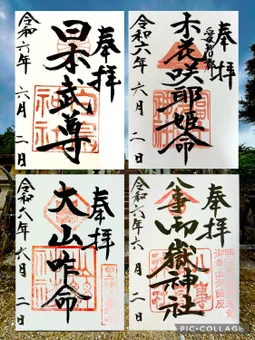 奉拝
日本武尊
令和六年 六月 二日
奉拝
木花咲耶姫命
令和六年 六月 二日
奉拝
大山咋命
令和六年 六月 二日
奉拝
八事御嶽神社
令和六年 六月 二日
PIC•COLLAGE